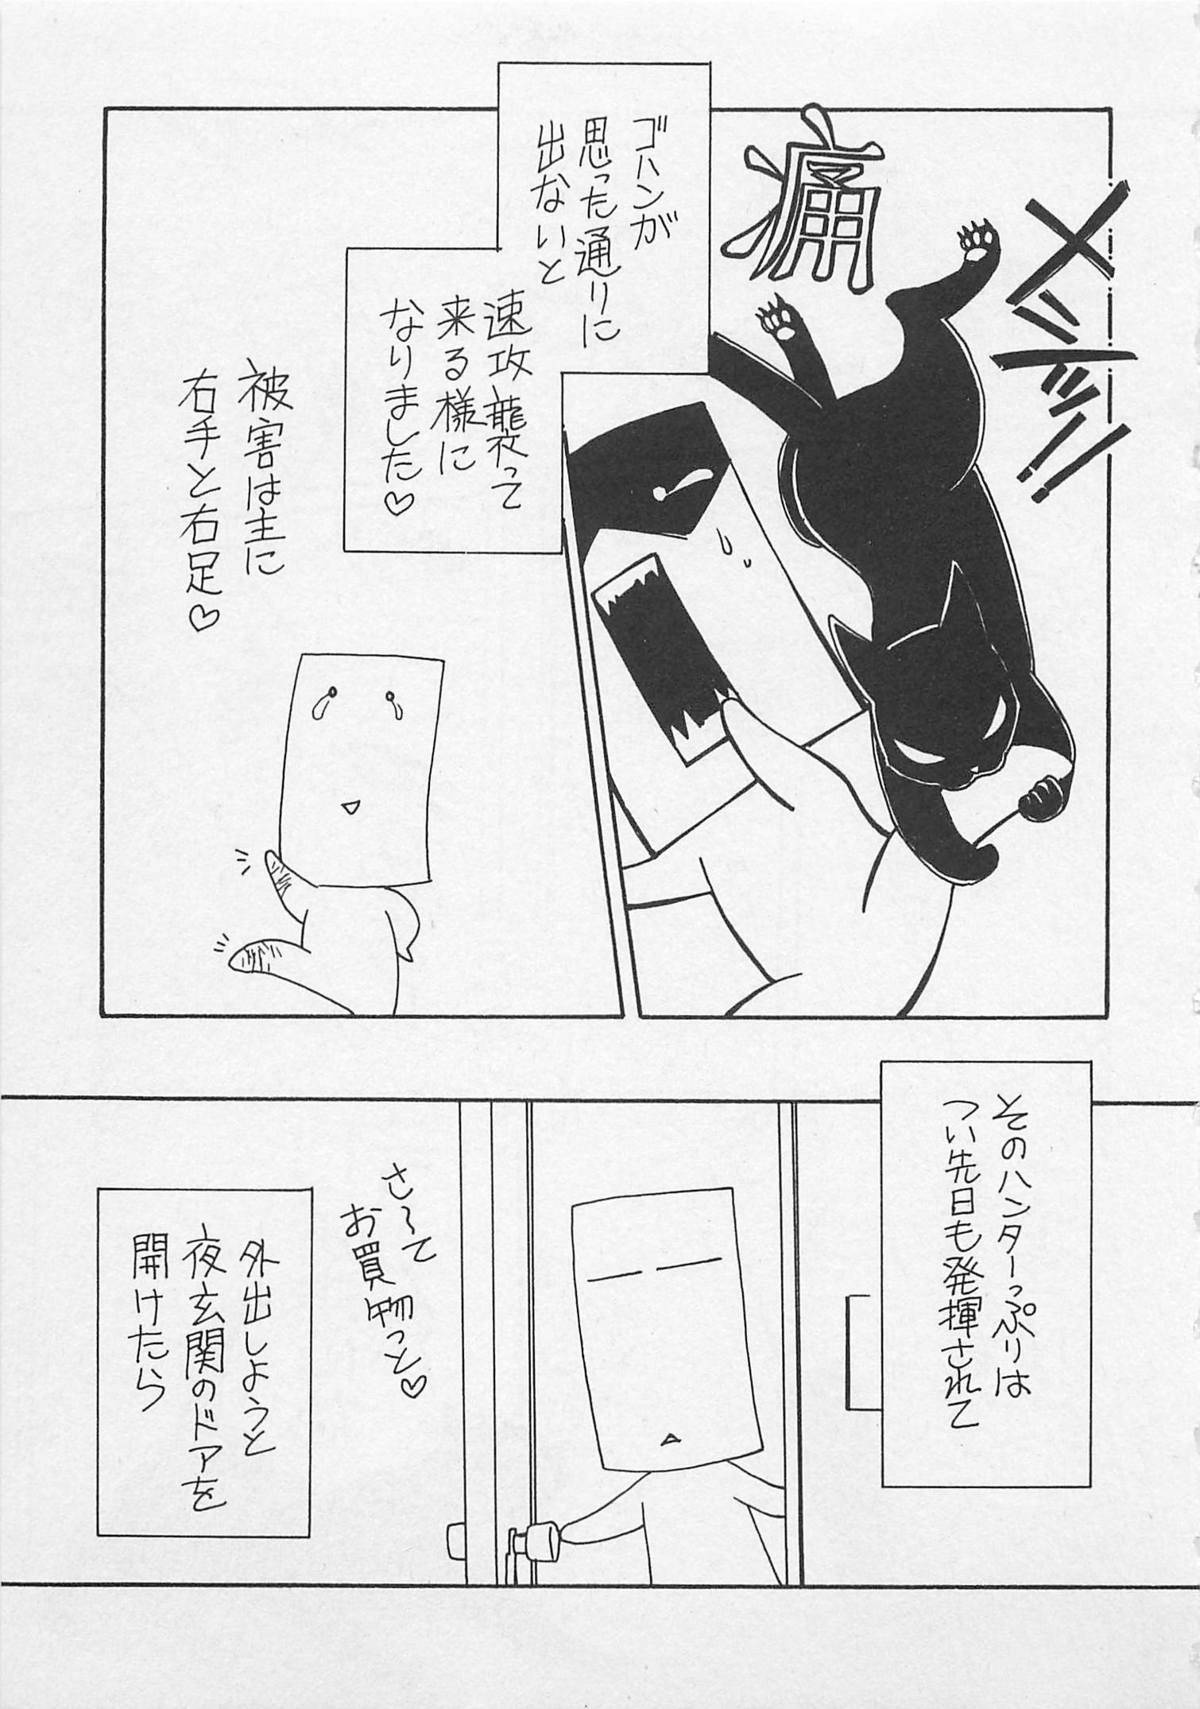 メシャッ!!
痛
ゴハンが
思った通りに
出ないと
速攻襲って
来る様に
なりました♡
被害は主に
右手と右足♡
そのハンターっぷりは
つい先日も発揮されて
さ～て
お買物っと♡
外出しようと
夜玄関のドアを
開けたら